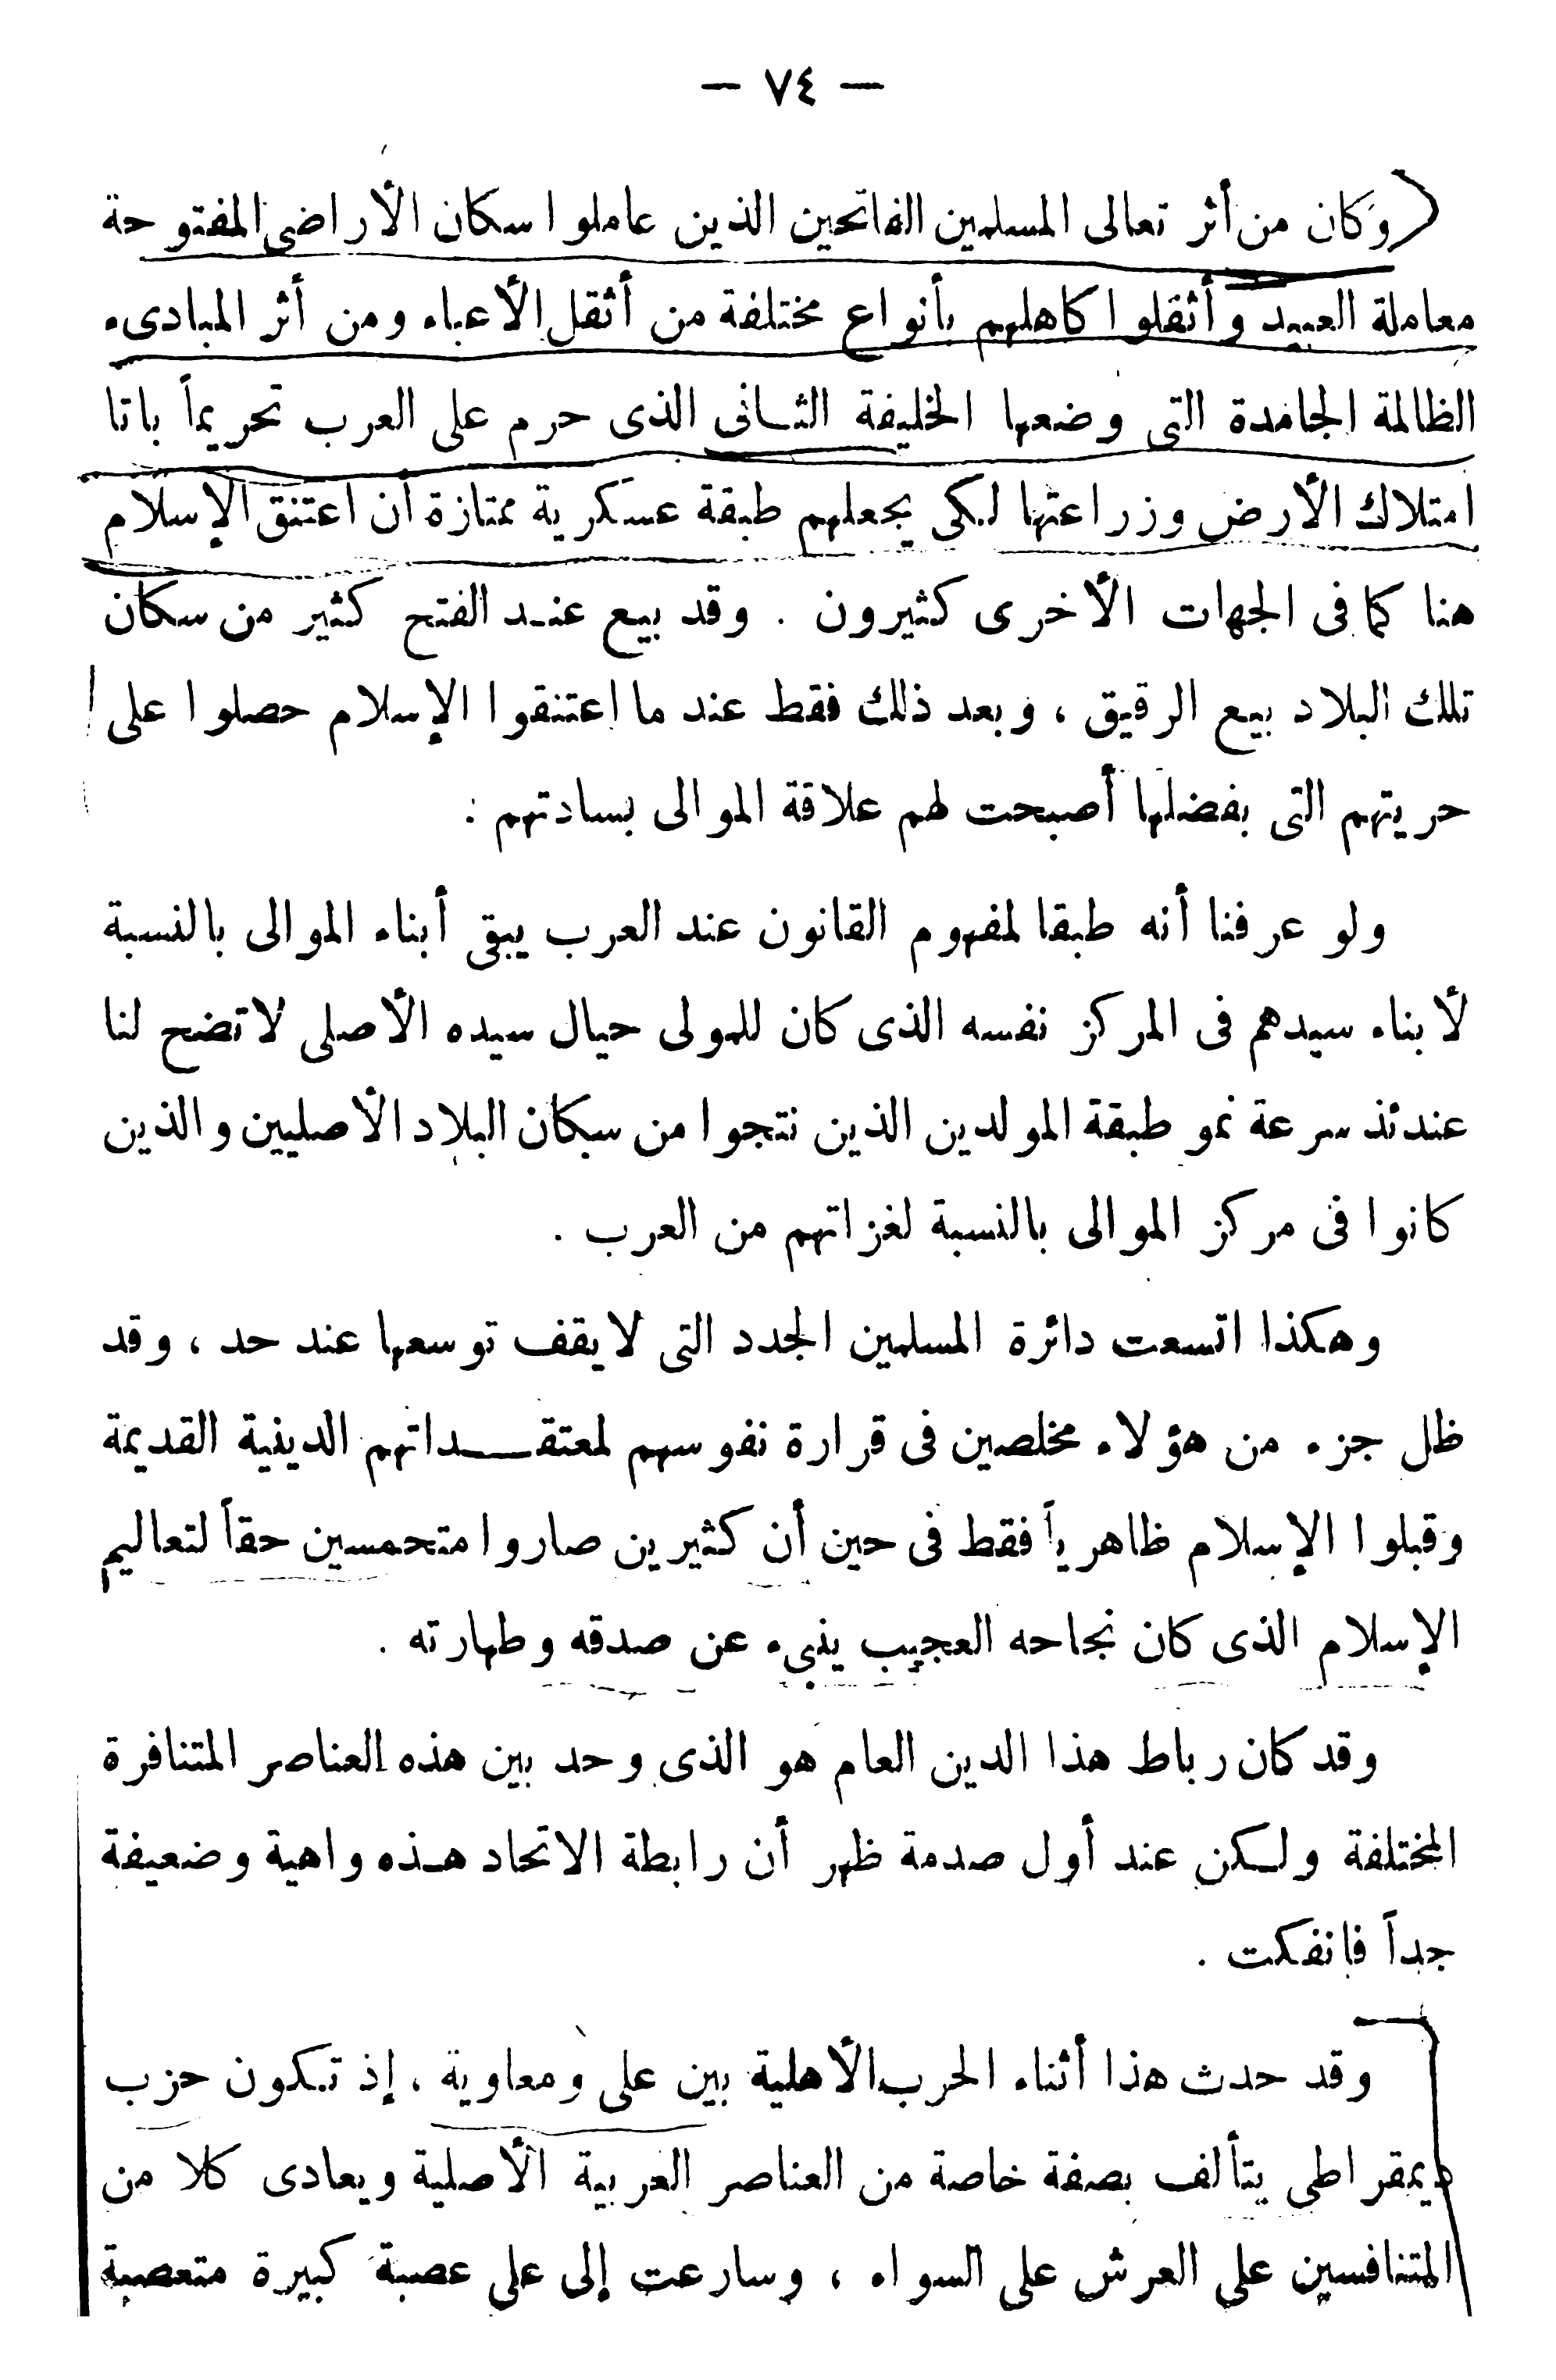 — ٧٤ —
وكان من أثر تعالى المسلمين الفاتحين الذين عاملوا سكان الأراضى المفتوحة
معاملة العبيد وأثقلوا كاهلهم بأنواع مختلفة من أثقل الأعباء ومن أثر المبادىء
الظالمة الجامدة التى وضعها الخليفة الثانى الذى حرم على العرب تحريماً باتا
امتلاك الأرض وزراعتها لكى يجعلهم طبقة عسكرية ممتازة أن اعتنق الإسلام
هنا كما فى الجهات الأخرى كثيرون . وقد بيع عند الفتح كثير من سكان
تلك البلاد بيع الرقيق ، وبعد ذلك فقط عند ما اعتنقوا الإسلام حصلوا على
حريتهم التى بفضلها أصبحت لهم علاقة الموالى بسادتهم :
ولو عرفنا أنه طبقا لمفهوم القانون عند العرب يبقى أبناء الموالى بالنسبة
لأبناء سيدهم فى المركز نفسه الذى كان للمولى حيال سيده الأصلى لاتضح لنا
عندئذ سرعة نمو طبقة المولدين الذين نتجوا من سكان البلاد الأصليين والذين
كانوا فى مركز الموالى بالنسبة لغزاتهم من العرب .
وهكذا اتسعت دائرة المسلمين الجدد التى لا يقف توسعها عند حد ، وقد
ظل جزء من هؤلاء مخلصين فى قرارة نفوسهم لمعتقداتهم الدينية القديمة
وقبلوا الإسلام ظاهرياً فقط فى حين أن كثيرين صاروا متحمسين حقاً لتعاليم
الإسلام الذى كان نجاحه العجيب ينبىء عن صدقه وطهارته .
وقد كان رباط هذا الدين العام هو الذى وحد بين هذه العناصر المتنافرة
المختلفة ولكن عند أول صدمة ظهر أن رابطة الاتحاد هذه واهية وضعيفة
جداً فانفكت .
وقد حدث هذا أثناء الحرب الأهلية بين على ومعاوية ، إذ تكون حزب
ديمقراطى يتألف بصفة خاصة من العناصر العربية الأصلية ويعادى كلا من
المتنافسين على العرش على السواء ، وسارعت إلى على عصبة كبيرة متعصبة